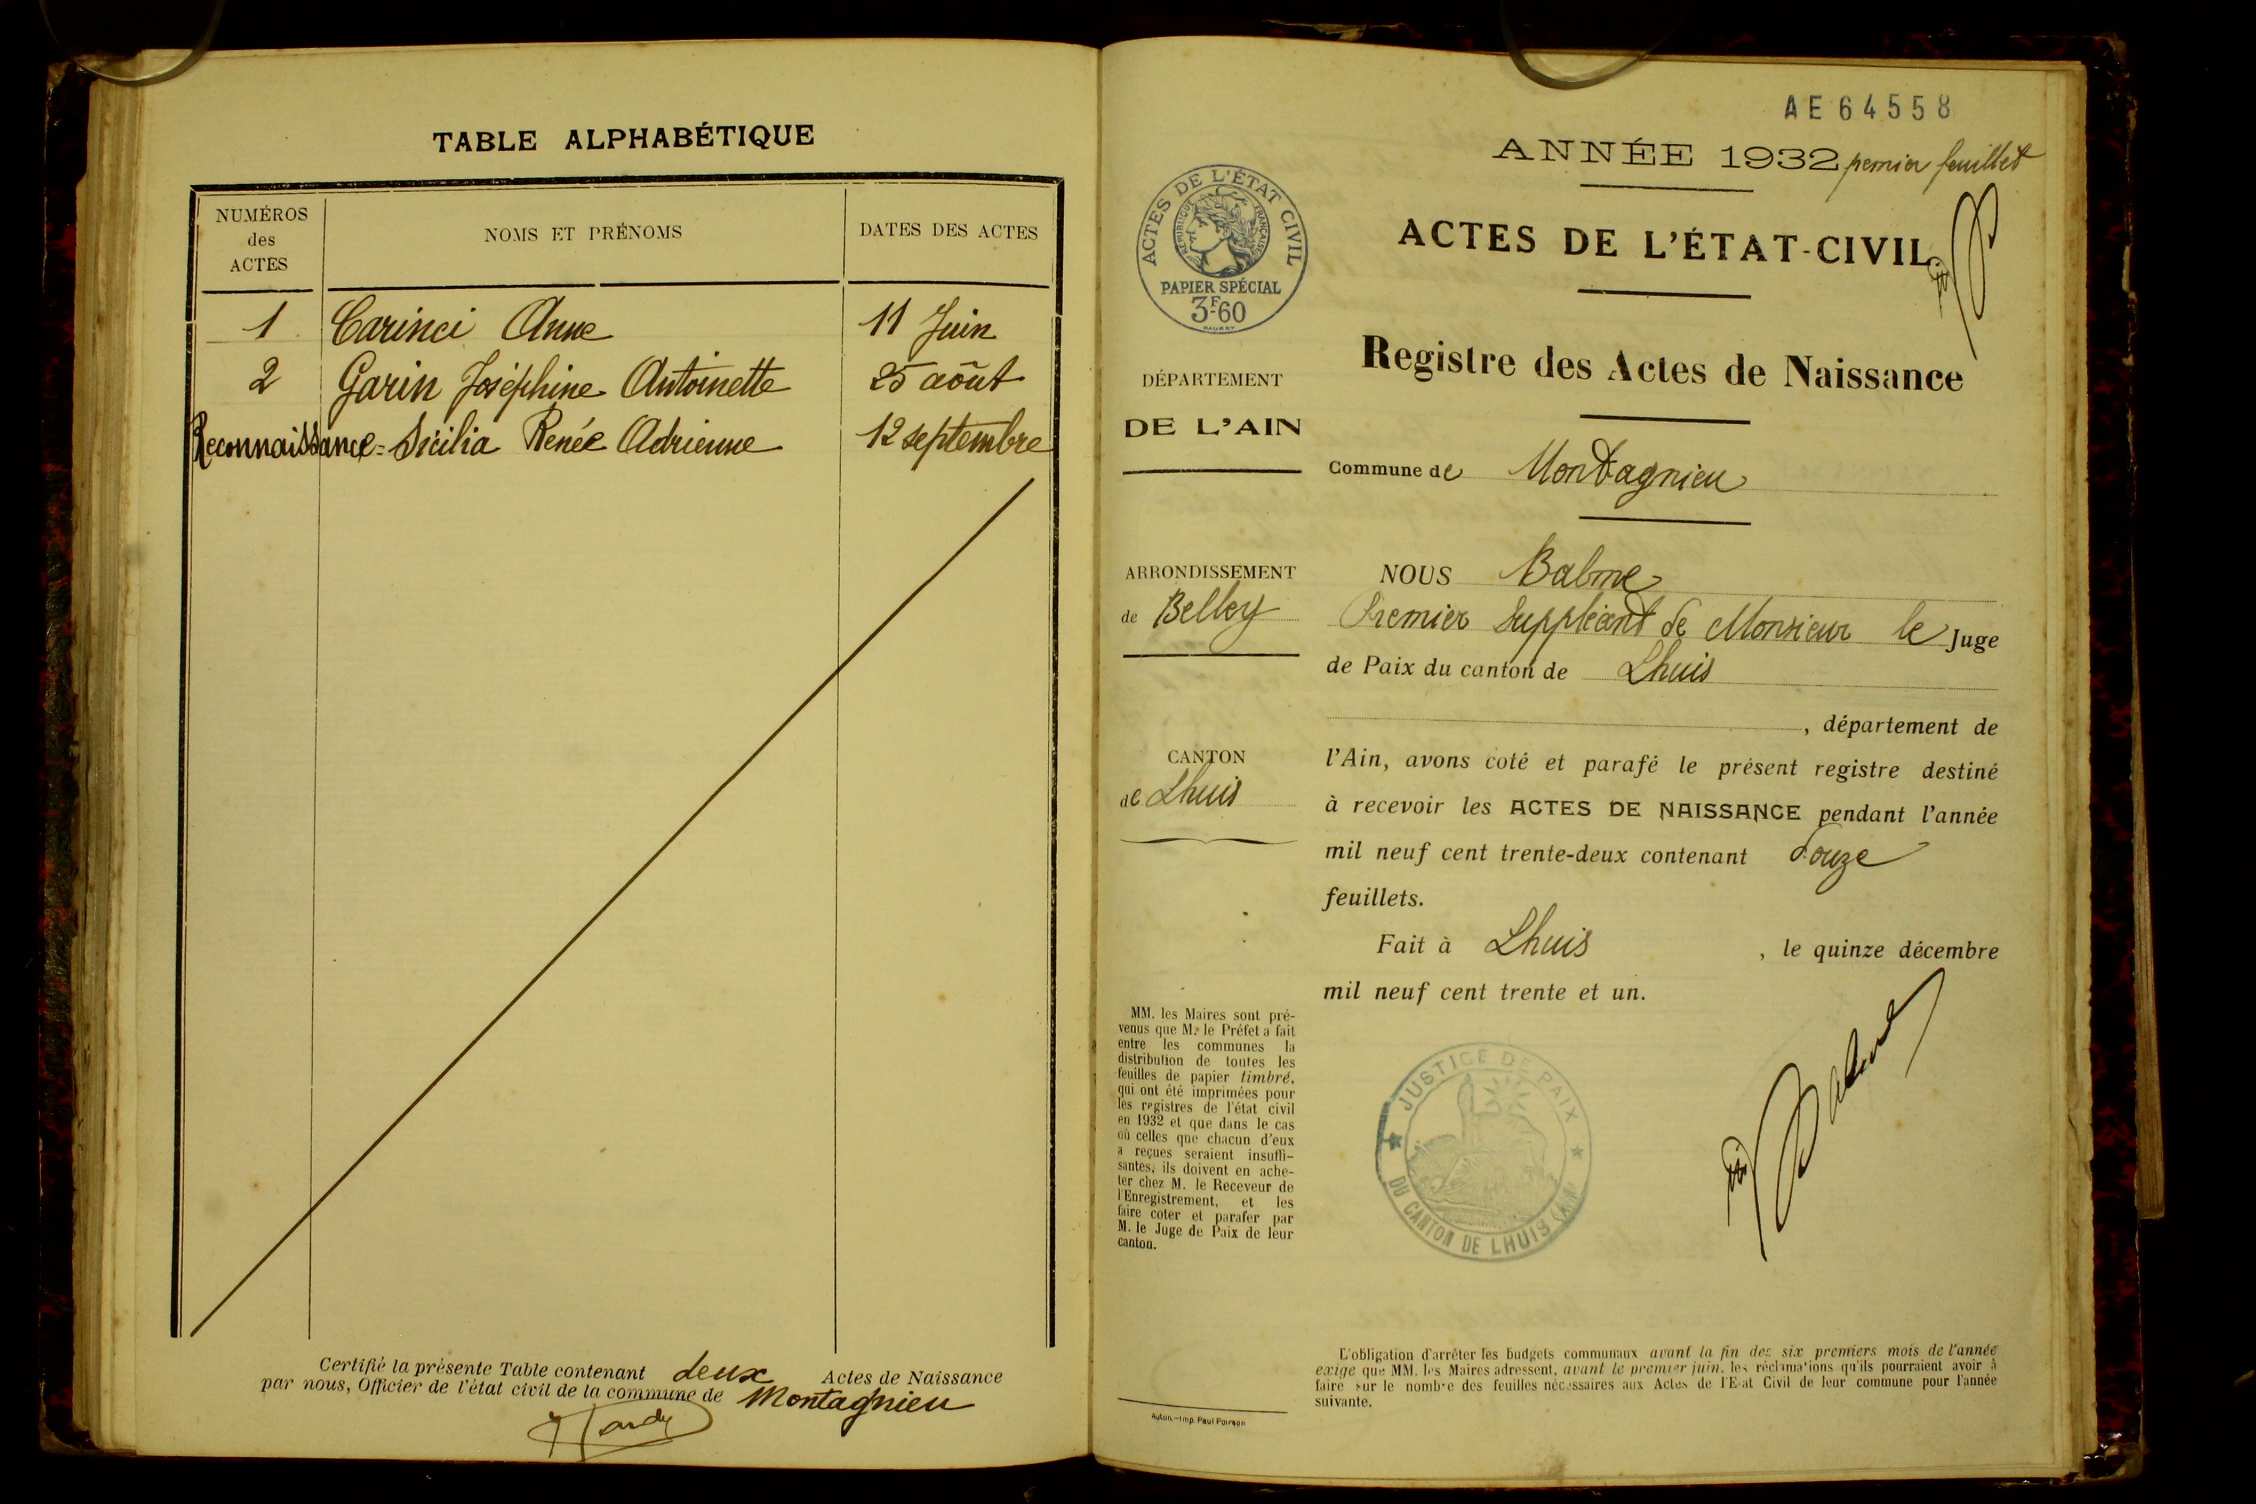 TABLE ALPHABÉTIQUE
NUMÉROS
des
ACTES
NOMS ET PRÉNOMS
DATES DES ACTES
1 Carinci Anne 11 Juin
2 Garin Joséphine Antoinette 25 août
Reconnaissance = Sicilia Renée Adrienne 12 septembre
Certifié la présente Table contenant deux Actes de Naissance
par nous, Officier de l'état civil de la commune de Montagnieu
AE 64558
ANNÉE 1932 premier feuillet
ACTES DE L'ÉTAT CIVIL
RÉPUBLIQUE FRANÇAISE
PAPIER SPÉCIAL
3F60
ACTES DE L'ÉTAT-CIVIL
Registre des Actes de Naissance
DÉPARTEMENT
DE L'AIN
Commune de Montagnieu
ARRONDISSEMENT
de Belley
CANTON
de Lhuis
NOUS Balme
Premier Suppléant de Monsieur le Juge
de Paix du canton de Lhuis
, département de
l'Ain, avons coté et parafé le présent registre destiné
à recevoir les ACTES DE NAISSANCE pendant l'année
mil neuf cent trente-deux contenant douze
feuillets.
Fait à Lhuis , le quinze décembre
mil neuf cent trente et un.
Balme
JUSTICE DE PAIX
DU CANTON DE LHUIS (AIN)
MM. les Maires sont pré-
venus que Mr le Préfet a fait
entre les communes la
distribution de toutes les
feuilles de papier timbré,
qui ont été imprimées pour
les registres de l'état civil
en 1932 et que dans le cas
où celles que chacun d'eux
a reçues seraient insuffi-
santes, ils doivent en ache-
ter chez M. le Receveur de
l'Enregistrement, et les
faire coter et parafer par
M. le Juge de Paix de leur
canton.
Auton.—Imp. Paul Poirson
L'obligation d'arrêter les budgets communaux avant la fin des six premiers mois de l'année
exige que MM. les Maires adressent, avant le premier juin, les réclamations qu'ils pourraient avoir à
faire sur le nombre des feuilles nécessaires aux Actes de l'Etat Civil de leur commune pour l'année
suivante.